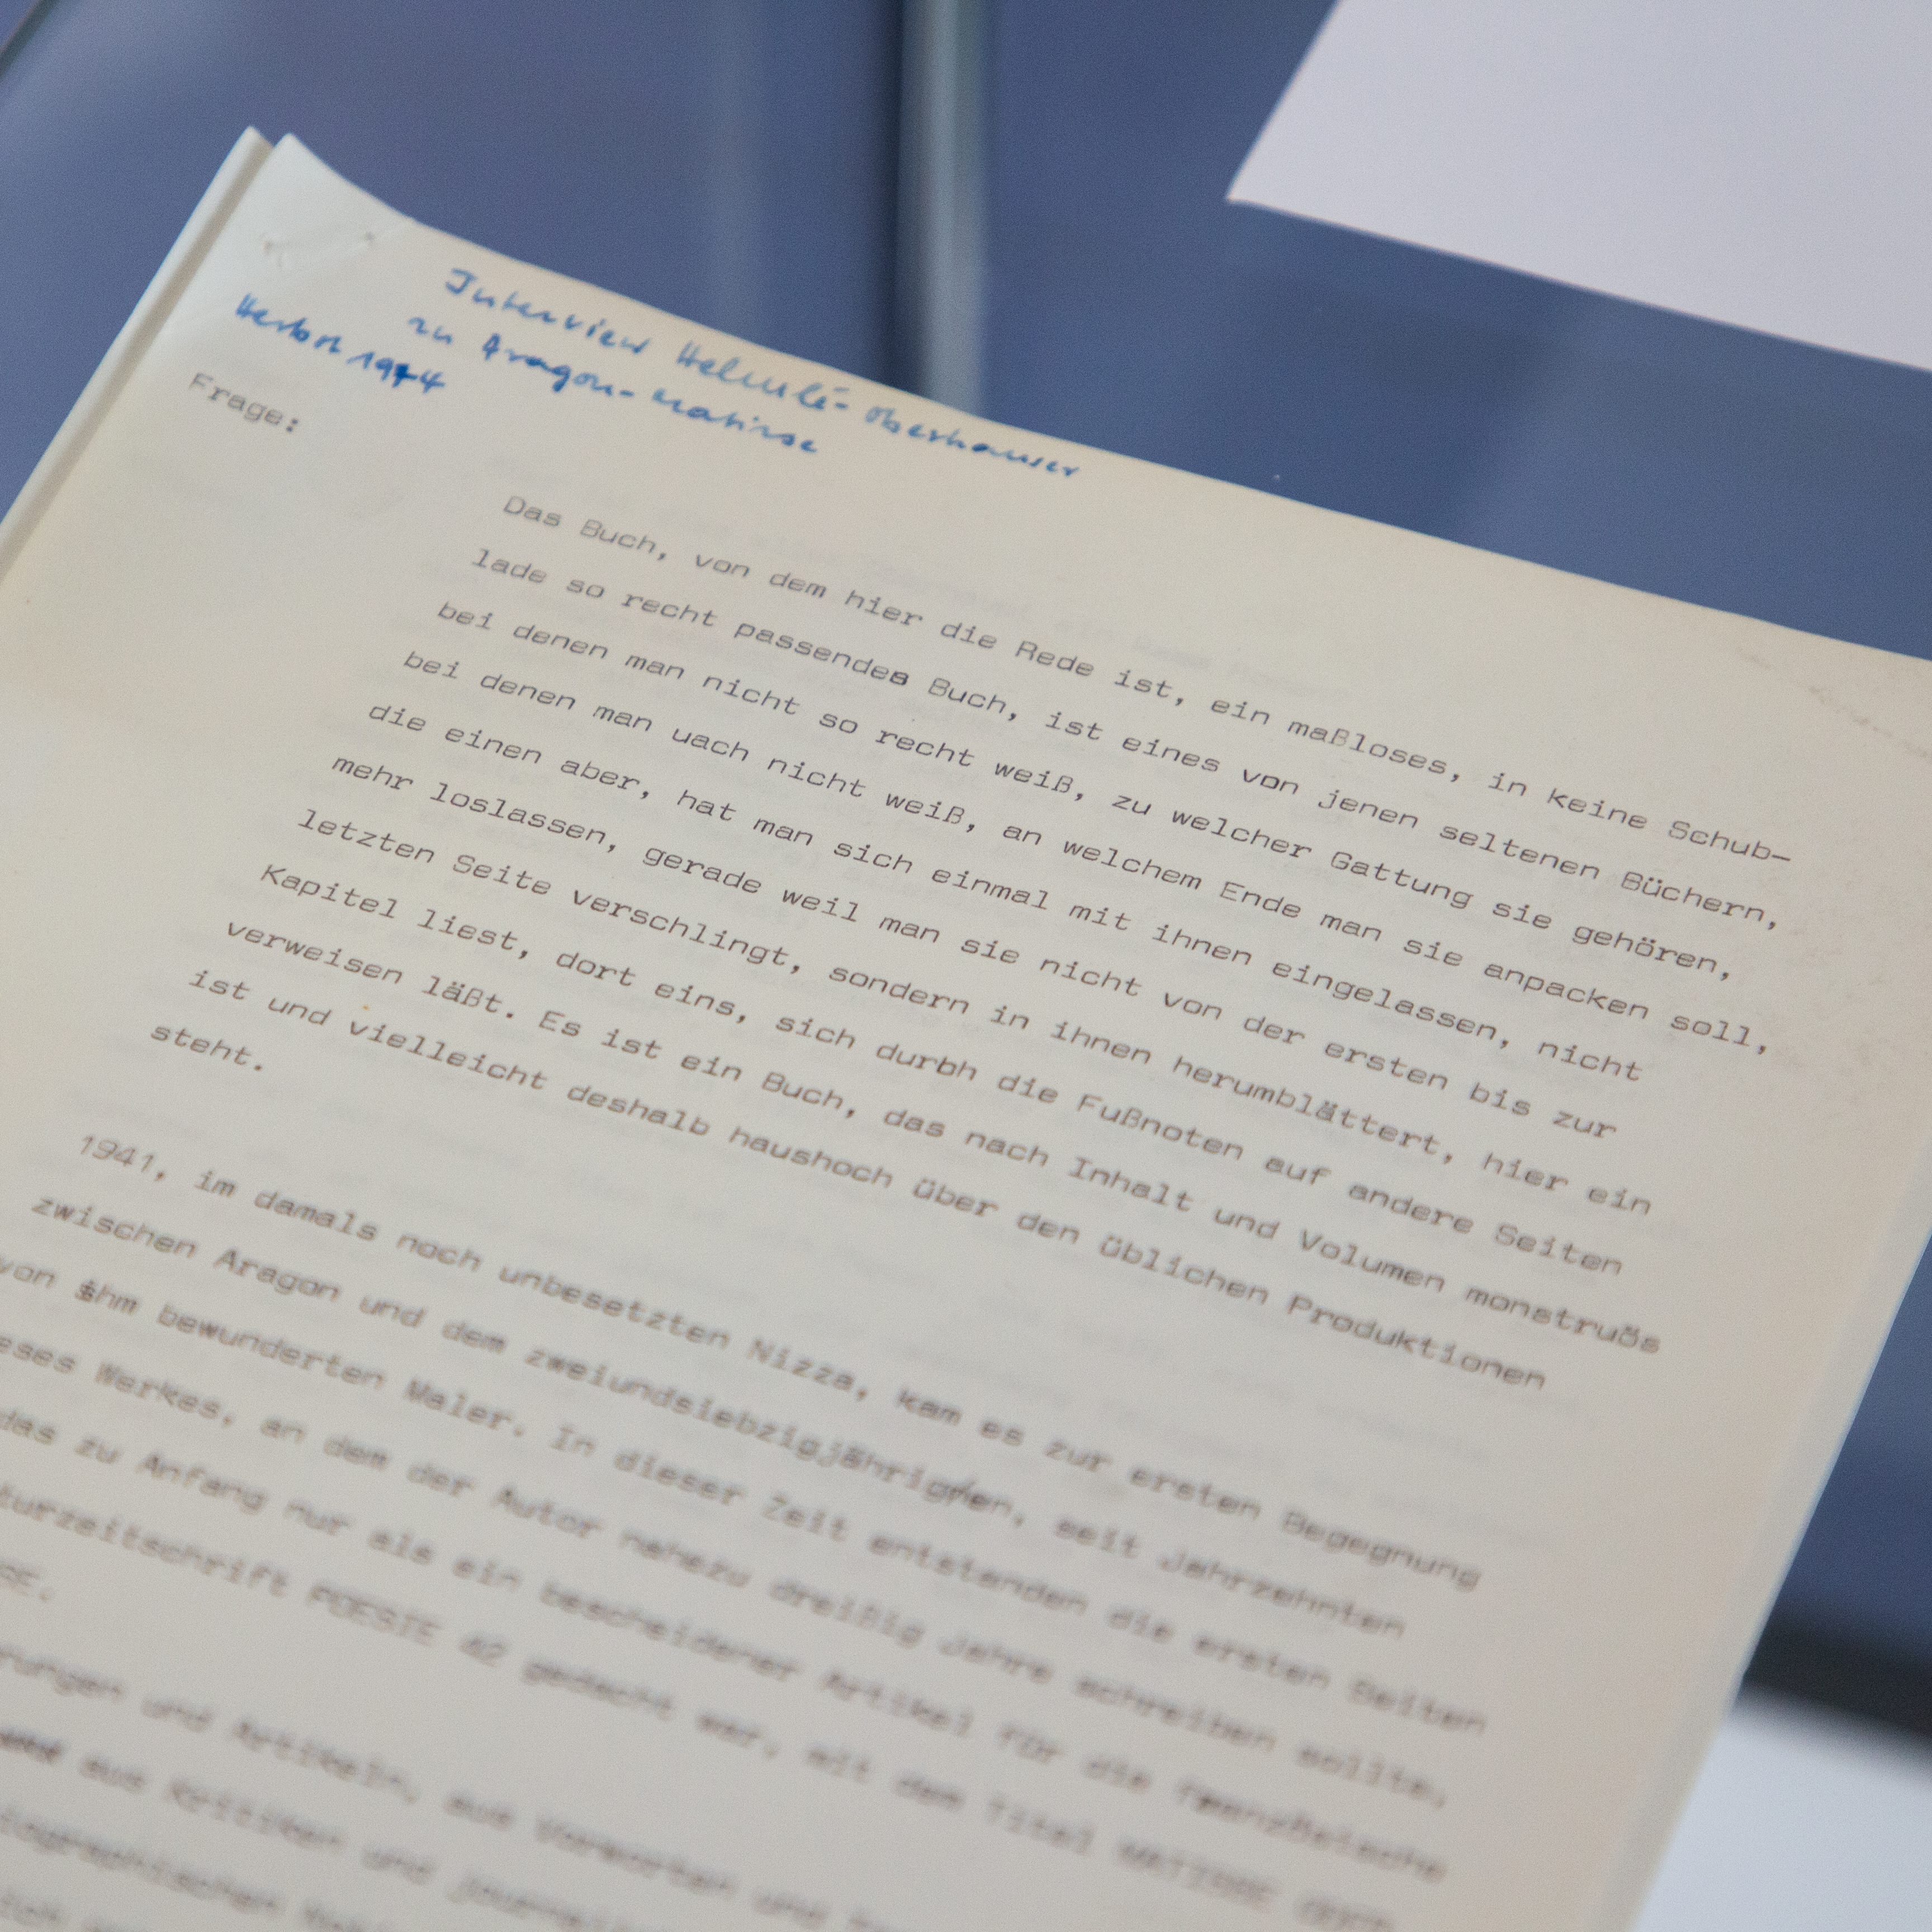 Interview Helmlé-Oberhauser
zu Aragon-Matisse
Herbst 1974
Frage:
Das Buch, von dem hier die Rede ist, ein maßloses, in keine Schub-
lade so recht passendes Buch, ist eines von jenen seltenen Büchern,
bei denen man nicht so recht weiß, zu welcher Gattung sie gehören,
bei denen man uach nicht weiß, an welchem Ende man sie anpacken soll,
die einen aber, hat man sich einmal mit ihnen eingelassen, nicht
mehr loslassen, gerade weil man sie nicht von der ersten bis zur
letzten Seite verschlingt, sondern in ihnen herumblättert, hier ein
Kapitel liest, dort eins, sich durch die Fußnoten auf andere Seiten
verweisen läßt. Es ist ein Buch, das nach Inhalt und Volumen monstruös
ist und vielleicht deshalb haushoch über den üblichen Produktionen
steht.
1941, im damals noch unbesetzten Nizza, kam es zur ersten Begegnung
zwischen Aragon und dem zweiundsiebzigjährigen, seit Jahrzehnten
von ihm bewunderten Maler. In dieser Zeit entstanden die ersten Seiten
eses Werkes, an dem der Autor nahezu dreißig Jahre schreiben sollte,
das zu Anfang nur als ein bescheidener Artikel für die französische
turzeitschrift POESIE 42 gedacht war, mit dem Titel MATISSE
rungen und Artikeln, aus Vorworten und
aus Kritiken und